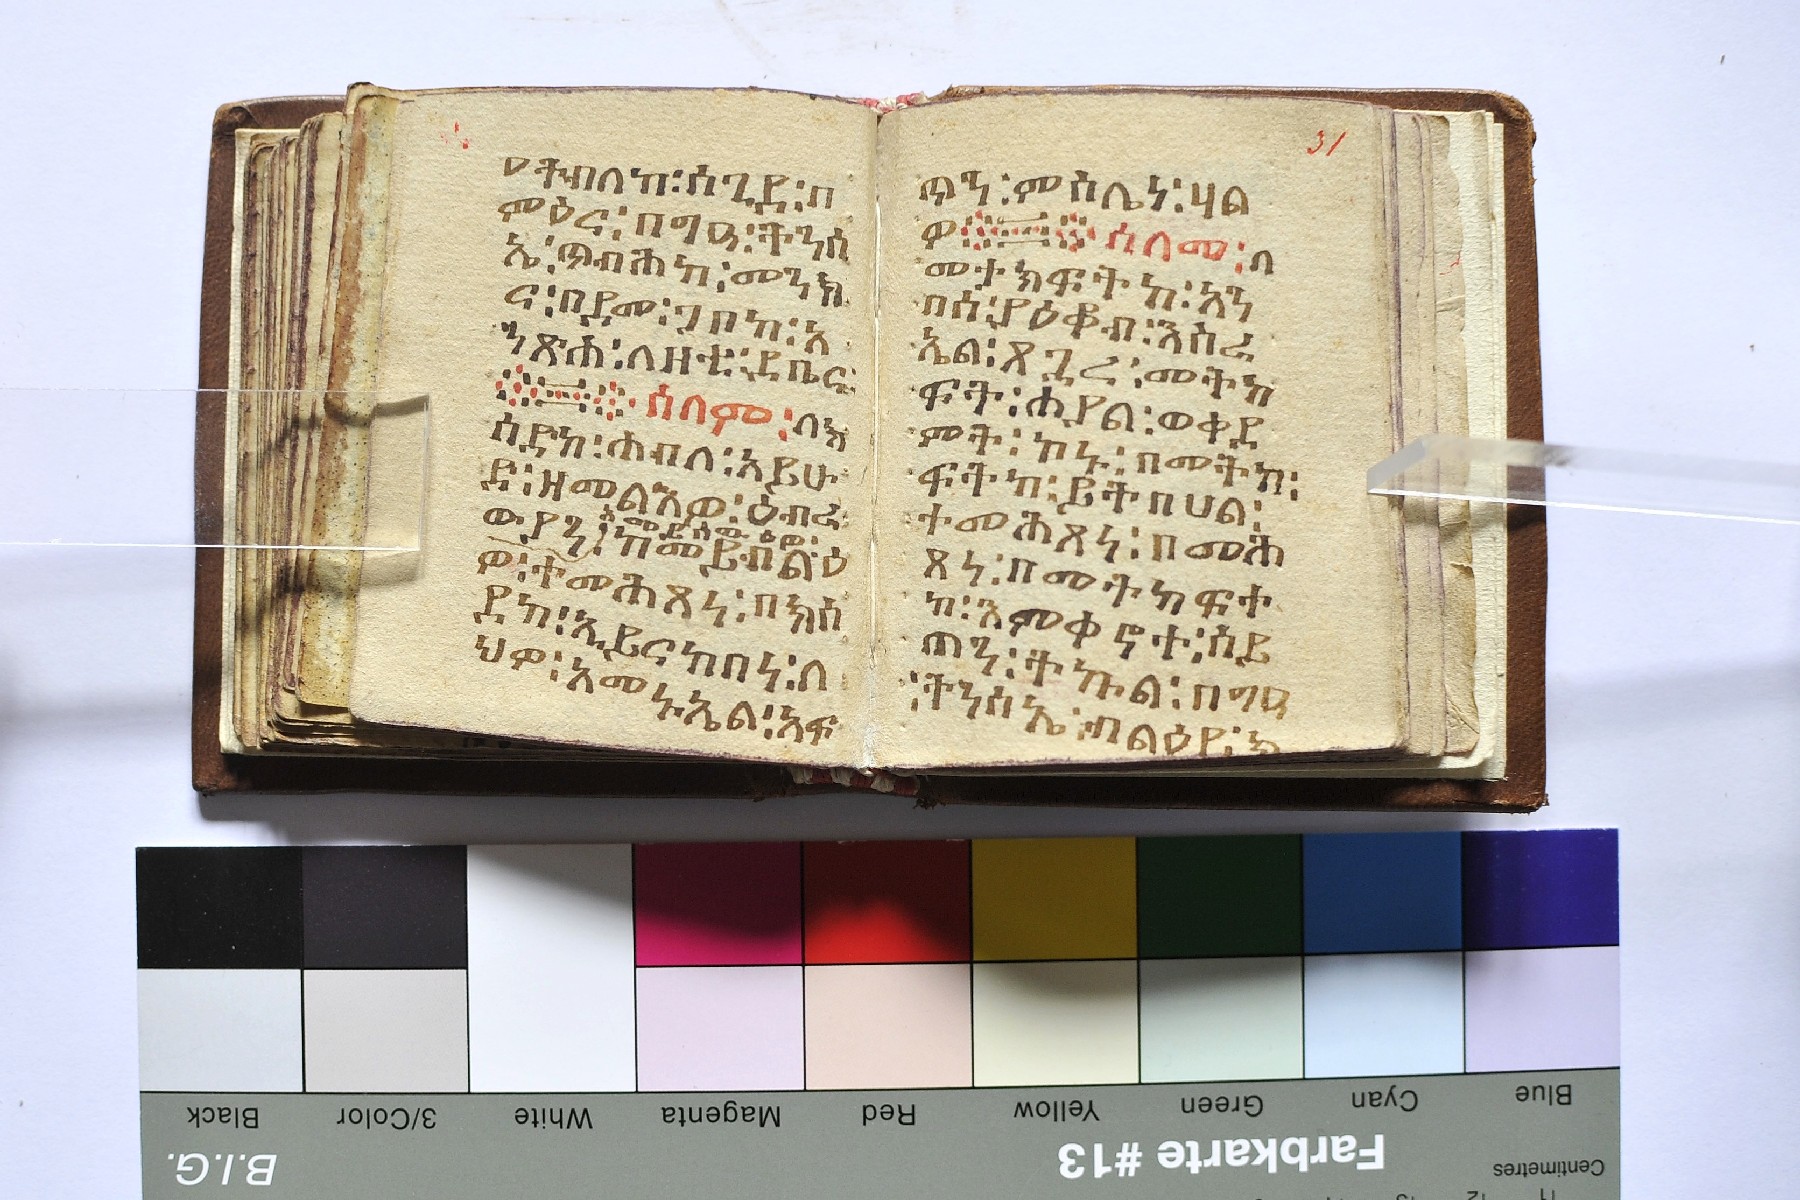 ትብለከ፡ሰጊድ፡በ
ምዕር፡በግዳ፡ትንሰ
ኤ፡ጥብሕከ፡መንክ
ር፡በደመ፡ገቦከ፡አ
ንጽሕ፡ለዘቲ፡ደብር
ሰላም፡ለክ
ሰድከ፡ሐብለ፡አይሁ
ድ፡ዘመልአወ፡ዕብሬ
ውያን፡ከመይብልዕ
ዎ፡ተመሕጸነ፡በክሰ
ድከ፡ኢይርከበነ፡ለ
ህዎ፡አመኑኤል፡አፍ
31
ጥን፡ምስሌነ፡ሃል
ዎ ሰላም፡ለ
መታክፍትከ፡አን
በሰ፡ያዕቆብ፡እስራ
ኤል፡ጸጊረ፡መትክ
ፍት፡ሐያል፡ወቀደ
ምት፡ከኑ፡በመትክ፡
ፍትከ፡ይትበሀል፡
ተመሕጸነ፡በመሕ
ጸነ፡በመትክፍተ
ከ፡እምቀኖተ፡ሰይ
ጠን፡ትኩል፡በግዳ
፡ትንሰኤ፡ብልዕየ፡ክ
Black
3/Color
White
Magenta
Red
Yellow
Green
Cyan
Blue
B.I.G.
Farbkarte #13
Centimetres